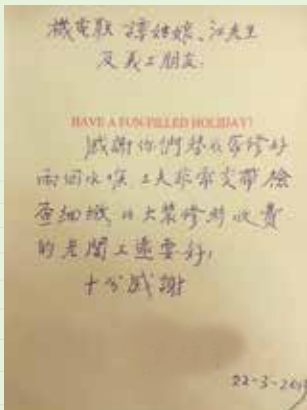 機電聯 譚姑娘、江先生
及義工朋友:
HAVE A FUN-FILLED HOLIDAY!
感謝你們替我家修好
兩個水喉,工夫非常
檢查細緻,比大裝修時收費
的老闆工還要好,
十分感謝
22-3-20